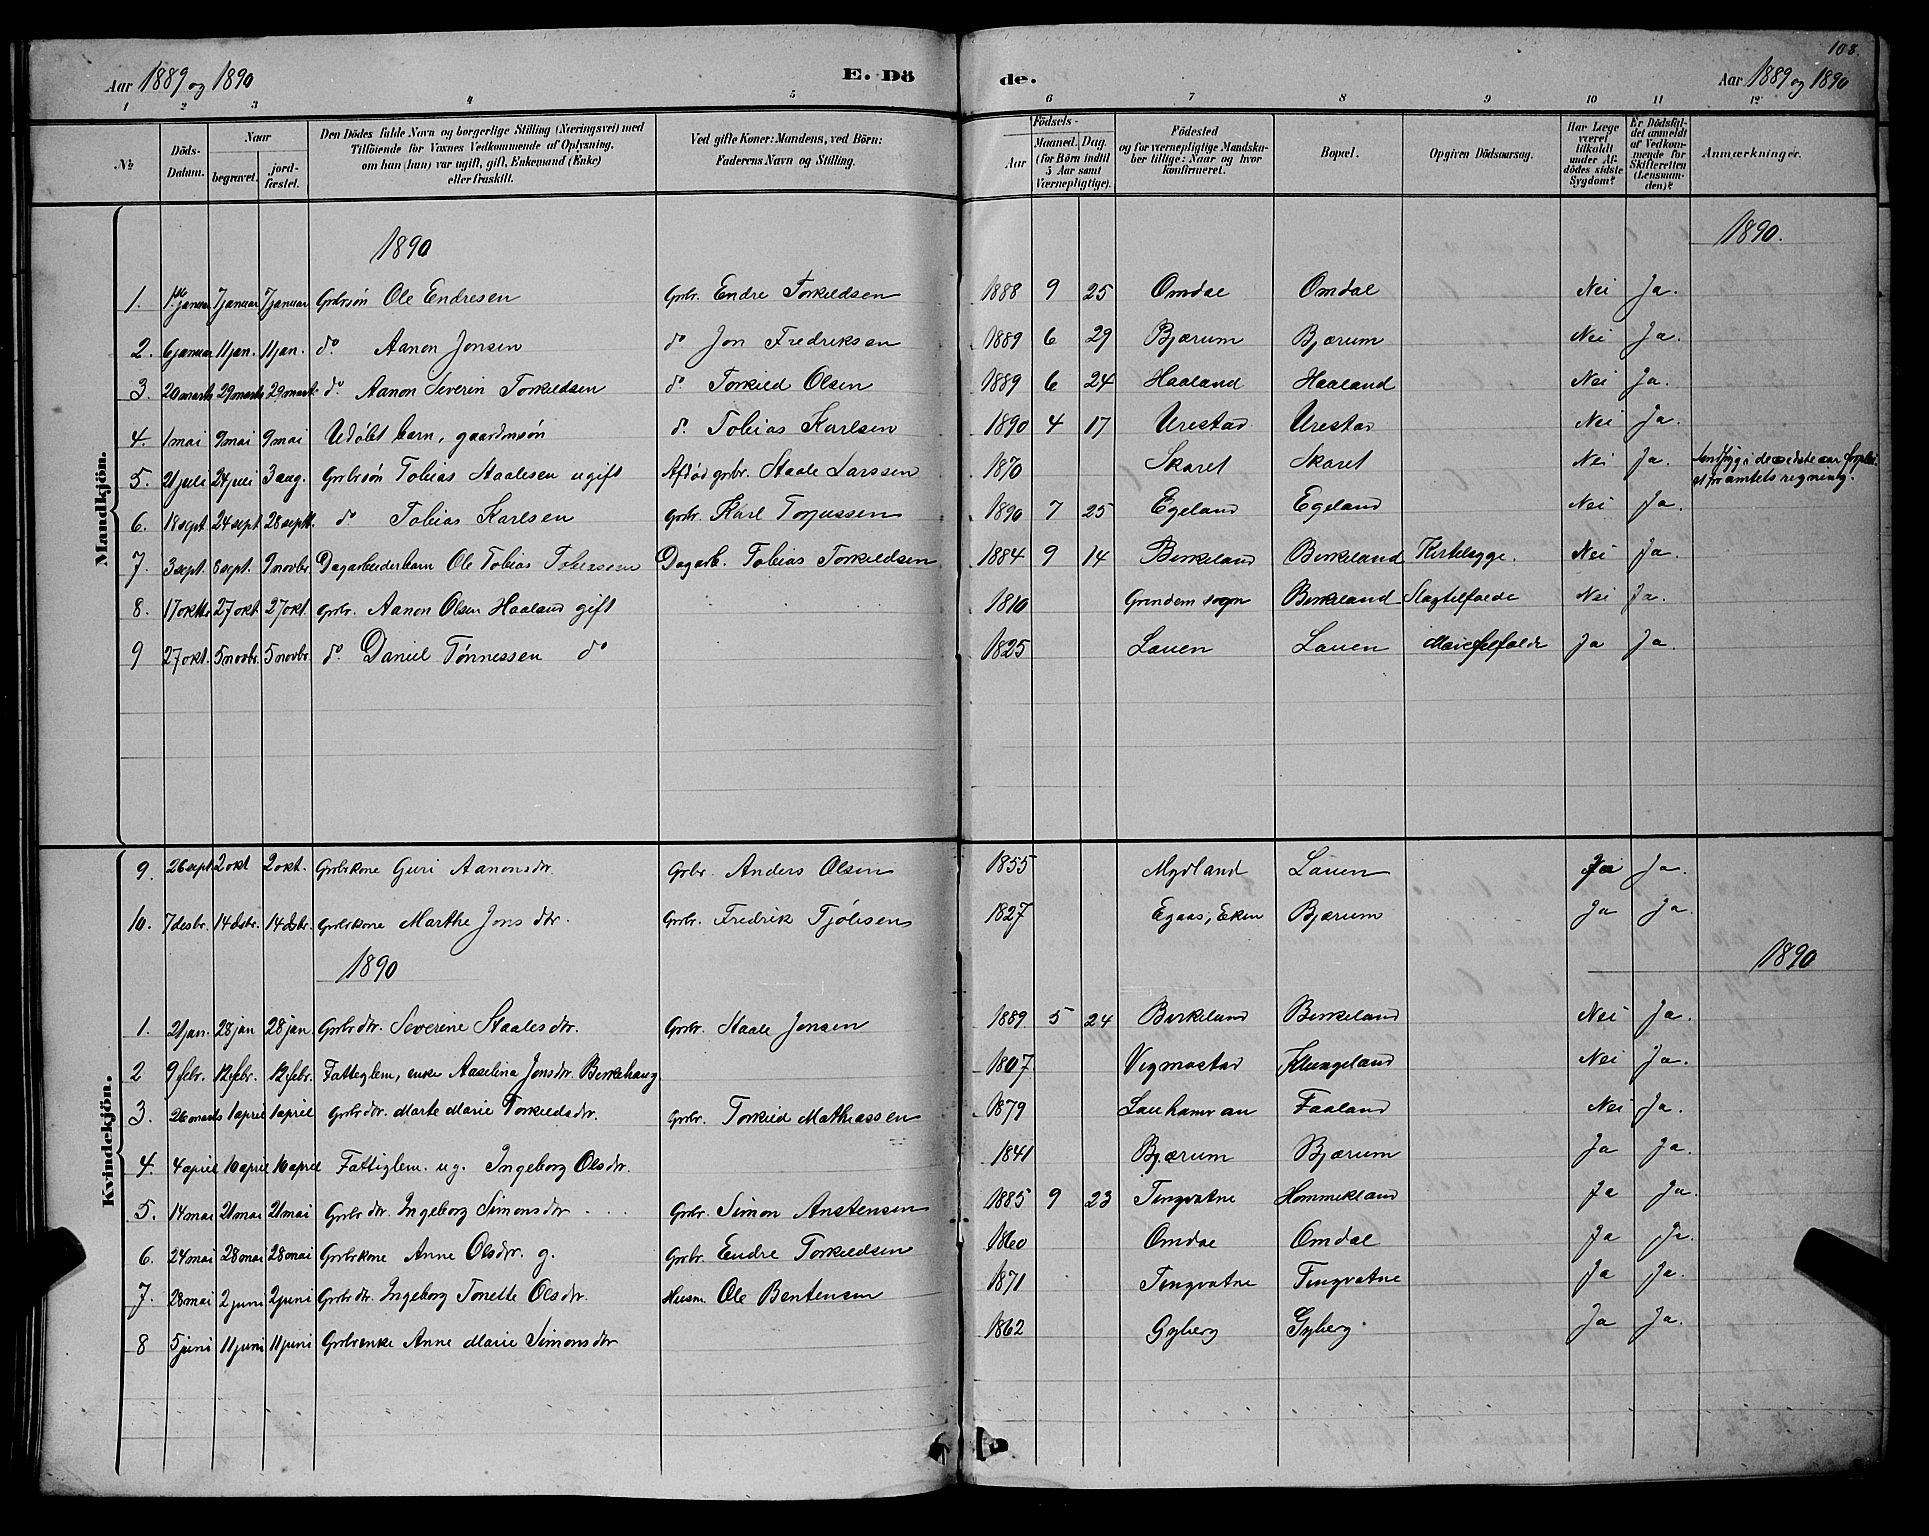 108.
Aar 1889 og 1890 E. Dö de. Aar 1889 og 1890
1 2 3 4 5 6 7 8 9 10 11 12
№ Döds-Datum. Naar begravet. jordfæstet. Den Dödes fulde Navn og borgerlige Stilling (Næringsvei) med Tilföiende for Voxnes Vedkommende af Oplysning, om han (hun) var ugift, gift, Enkemand (Enke) eller fraskilt. Ved gifte Koner: Mandens, ved Börn: Faderens Navn og Stilling. Födsels- Aar Maaned. Dag. (for Börn indtil 5 Aar samt Værnepligtige). Födested og for værnepligtige Mandskaber tillige: Naar og hvor konfirmeret. Bopæl. Opgiven Dödsaarsag. Har Læge været tilkaldt under Afdödes sidste Sygdom? Er Dödsfaldet anmeldt af Vedkommende for Skifteretten (Lensmanden)? Anmærkninger.
Mandkjön.
1890 1890.
1. 1ste januar 7 januar 7 januar Grbrsøn Ole Endresen Grbr. Endre Torkildsen 1888 9 25 Omdal Omdal Nei Ja.
2. 6 januar 11 jan. 11 jan. do Aanon Jonsen do Jon Fredriksen 1889 6 29 Bjærum Bjærum Nei Ja.
3. 20 marts 29 marts 29 marts do Aanon Severin Torkildsen do Torkild Olsen 1889 6 24 Haaland Haaland Nei Ja.
4. 1 mai 9 mai 9 mai Udøbt barn, gaardmsøn do Tobias Karlsen 1890 4 17 Urestad Urestad Nei Ja.
5. 21 juli 24 juli 3 aug. Grbrsøn Tobias Staalesen ugift Afdød grbr. Staale Larssen 1870 Skaret Skaret Nei Ja. Sindssyg i de sidste aar forpleiet for amtets regning.
6. 18 sept. 24 sept. 28 septb. do Tobias Karlsen Grbr. Karl Torjussen 1890 7 25 Egeland Egeland Nei Ja.
7. 3 sept. 8 sept. 9 novbr. Dagarbeiderbarn Ole Tobias Tobiassen Dagarb. Tobias Torkildsen 1884 9 14 Birkeland Birkeland Kirtelsyge. Nei Ja.
8. 17 oktb. 27 okt. 27 okt. Grbr. Aanon Olsen Haaland gift 1810 Grindem sogn Birkeland Slagtilfælde Nei Ja.
9 27 okt. 5 novbr. 5 novbr. do Daniel Tønnessen do 1825 Lauen Lauen Ja Ja.
Kvindekjön.
9. 26 sept 2 okt 2 okt. Grbrkone Guri Aanonsdtr. Grbr. Anders Olsen 1855 Mydland Lauen Ja.
10. 7 desbr. 14 dsbr. 14 dsbr. Grbrkone Marthe Jonsdtr. Grbr. Fredrik Tjøllsen 1827 Egaas, Eken Bjærum Ja Ja.
1890 1890
1. 21 jan. 28 jan 28 jan. Grbrdtr. Severine Staalesdtr. Grbr. Staale Jonsen 1889 5 24 Birkeland Birkeland Nei Ja.
2 9 febr. 12 febr. 12 febr. Fattiglem, enke Aaselina Jonsdtr. Birkehaug 1807 Vigmostad Klungeland Nei Ja.
3. 26 marts 1 april 1 april Grbrdtr. Marte Marie Torkildsdtr. Grbr. Torkild Mathiassen 1879 Lauhamran Faaland Nei Ja.
4. 4 april 10 april 10 april Fattiglem. ug. Ingeborg Olsdtr. 1841 Bjærum Bjærum Ja Ja.
5. 14 mai 21 mai 21 mai Grbrdtr. Ingeborg Simonsdtr Grbr. Simon Anstensen 1885 9 23 Tingvatne Hommekland Ja Ja.
6 24 mai 28 mai 28 mai Grbrkone Anne Olsdtr. g. Grbr. Endre Torkildsen 1860 Omdal Omdal Ja Ja.
7. 28 mai 2 juni 2 juni Grbrdtr. Ingeborg Tonette Olsdtr. Husm. Ole Bentensen 1871 Tingvatne Tingvatne Ja Ja.
8 5 juni 11 juni 11 juni Grbrenke Anne Marie Simonsdtr 1862 Gyberg Gyberg. Ja Ja.